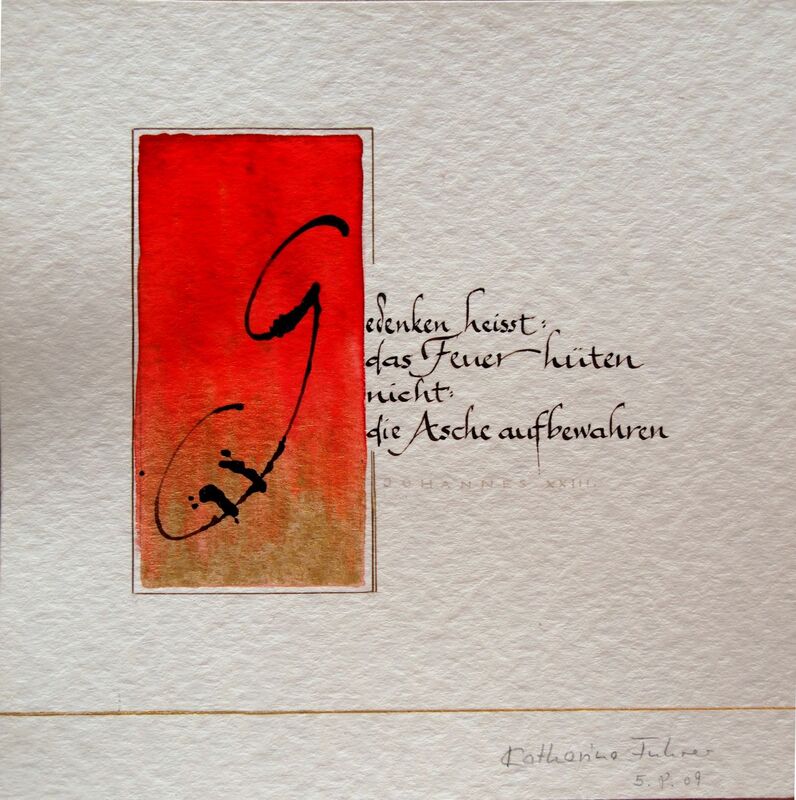 Gedenken heisst:
das Feuer hüten
nicht:
die Asche aufbewahren
JOHANNES XXIII.
Katharina Fuhrer
5. 8. 09